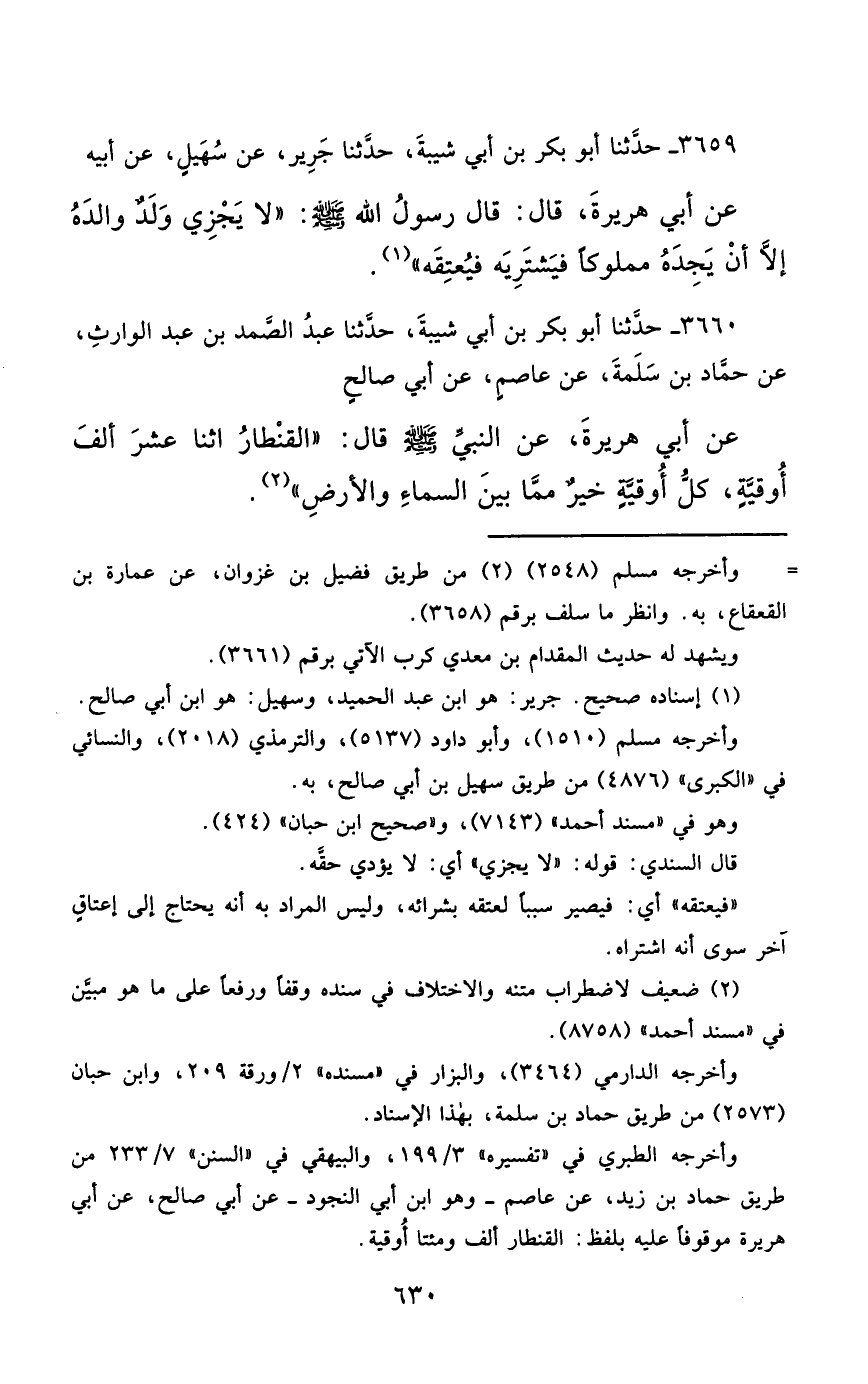 ٣٦٥٩ـ حدَّثنا أبو بكر بن أبي شيبةَ، حدَّثنا جَرِير، عن سُهَيلٍ، عن أبيه
عن أبي هريرةَ، قال: قال رسولُ الله ﷺ: «لا يَجْزِي وَلَدٌ والدَهُ
إلاَّ أنْ يَجِدَهُ مملوكاً فيَشتَرِيَه فيُعتِقَه»(١).
٣٦٦٠ـ حدَّثنا أبو بكر بن أبي شيبةَ، حدَّثنا عبدُ الصَّمد بن عبد الوارثِ،
عن حمَّاد بن سَلَمةَ، عن عاصمٍ، عن أبي صالحٍ
عن أبي هريرةَ، عن النبيِّ ﷺ قال: «القنْطارُ اثنا عشرَ ألفَ
أُوقيَّةٍ، كلُّ أُوقيَّةٍ خيرٌ ممَّا بينَ السماءِ والأرضِ»(٢).
= وأخرجه مسلم (٢٥٤٨) (٢) من طريق فضيل بن غزوان، عن عمارة بن
القعقاع، به. وانظر ما سلف برقم (٣٦٥٨).
ويشهد له حديث المقدام بن معدي كرب الآتي برقم (٣٦٦١).
(١) إسناده صحيح. جرير: هو ابن عبد الحميد، وسهيل: هو ابن أبي صالح.
وأخرجه مسلم (١٥١٠)، وأبو داود (٥١٣٧)، والترمذي (٢٠١٨)، والنسائي
في «الكبرى» (٤٨٧٦) من طريق سهيل بن أبي صالح، به.
وهو في «مسند أحمد» (٧١٤٣)، و«صحيح ابن حبان» (٤٢٤).
قال السندي: قوله: «لا يجزي» أي: لا يؤدي حقَّه.
«فيعتقه» أي: فيصير سبباً لعتقه بشرائه، وليس المراد به أنه يحتاج إلى إعتاقٍ
آخر سوى أنه اشتراه.
(٢) ضعيف لاضطراب متنه والاختلاف في سنده وقفاً ورفعاً على ما هو مبيَّن
في «مسند أحمد» (٨٧٥٨).
وأخرجه الدارمي (٣٤٦٤)، والبزار في «مسنده» ٢/ورقة ٢٠٩، وابن حبان
(٢٥٧٣) من طريق حماد بن سلمة، بهٰذا الإسناد.
وأخرجه الطبري في «تفسيره» ١٩٩/٣، والبيهقي في «السنن» ٢٣٣/٧ من
طريق حماد بن زيد، عن عاصم ـ وهو ابن أبي النجود ـ عن أبي صالح، عن أبي
هريرة موقوفاً عليه بلفظ: القنطار ألف ومئتا أُوقية.
٦٣٠